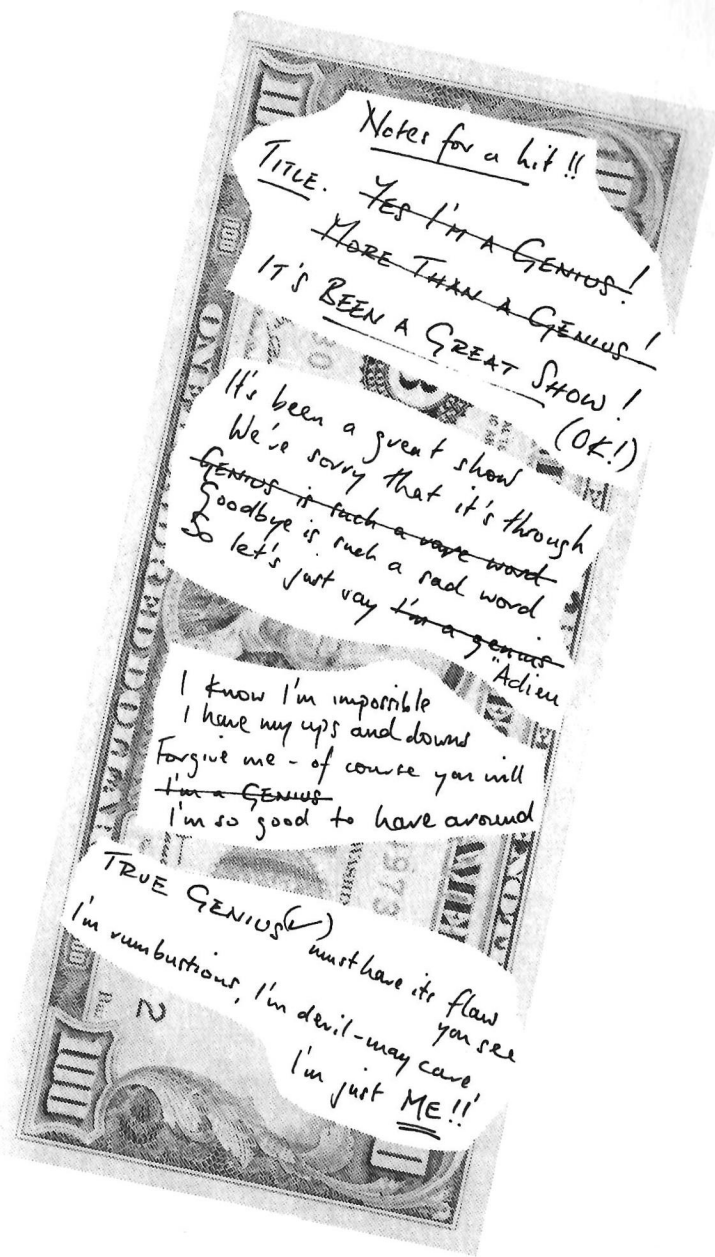 Notes for a hit !!
TITLE. YES I'M A GENIUS!
MORE THAN A GENIUS!
IT'S BEEN A GREAT SHOW!
(OK!)
It's been a great show
We're sorry that it's through
GENIUS is such a rare word
Goodbye is such a sad word
So let's just say I'm a genius
"Adieu
I know I'm impossible
I have my ups and downs
Forgive me - of course you will
I'm a GENIUS
I'm so good to have around
TRUE GENIUS (✓) must have its flaw
you see
I'm rumbustious, I'm devil-may care'
I'm just ME!!
100
ONE
30
1973
2